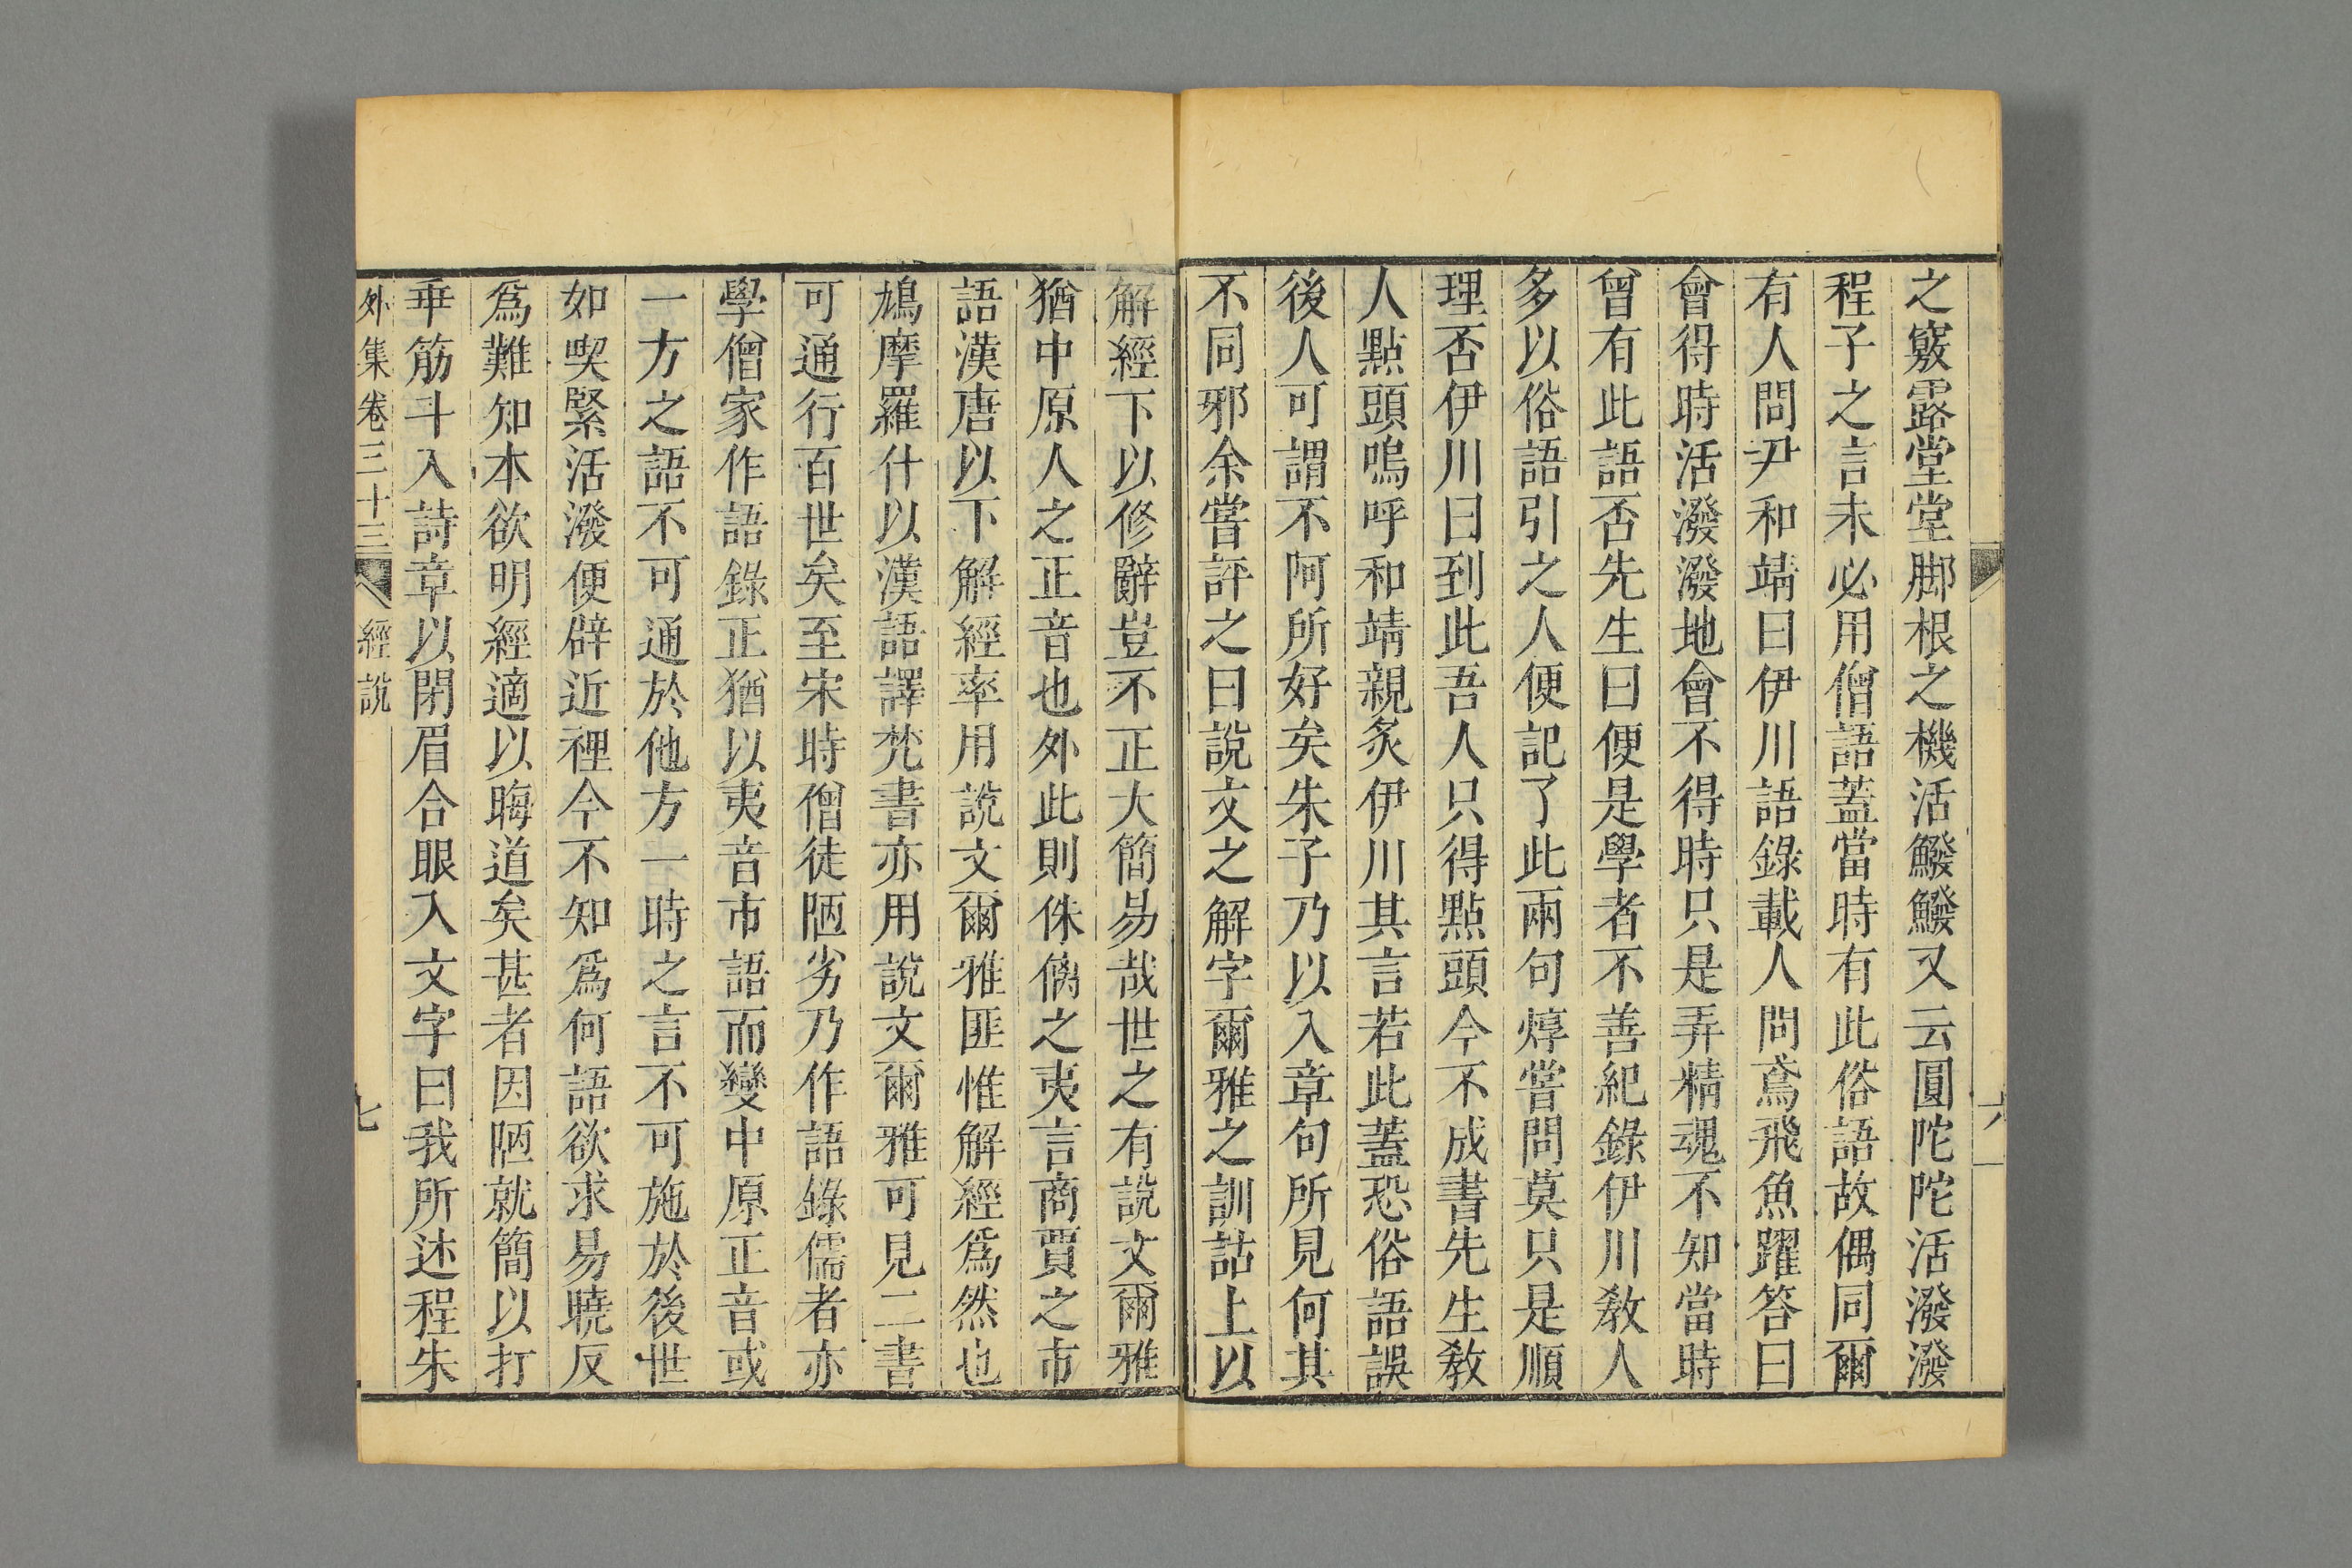 之竅露堂堂脚根之機活鱍鱍又云圓陀陀活潑潑
程子之言未必用僧語蓋當時有此俗語故偶同爾
有人問尹和靖曰伊川語錄載人問鳶飛魚躍答曰
會得時活潑潑地會不得時只是弄精魂不知當時
曾有此語否先生曰便是學者不善紀錄伊川教人
多以俗語引之人便記了此兩句焞嘗問莫只是順
理否伊川曰到此吾人只得點頭今不成書先生教
人點頭嗚呼和靖親炙伊川其言若此蓋恐俗語誤
後人可謂不阿所好矣朱子乃以入章句所見何其
不同邪余嘗評之曰說文之解字爾雅之訓詁上以
解經下以修辭豈不正大簡易哉世之有說文爾雅
猶中原人之正音也外此則侏儷之夷言商賈之市
語漢唐以下解經率用說文爾雅匪惟解經爲然也
鳩摩羅什以漢語譯梵書亦用說文爾雅可見二書
可通行百世矣至宋時僧徒陋劣乃作語錄儒者亦
學僧家作語錄正猶以夷音市語而變中原正音或
一方之語不可通於他方一時之言不可施於後世
如喫緊活潑便辟近裡今不知爲何語欲求易曉反
爲難知本欲明經適以晦道矣甚者因陋就簡以打
乖筋斗入詩章以閉眉合眼入文字曰我所述程朱
外集卷三十三 經說 七